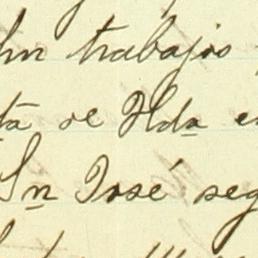 trabajos
ta de Hda
Sn José seg